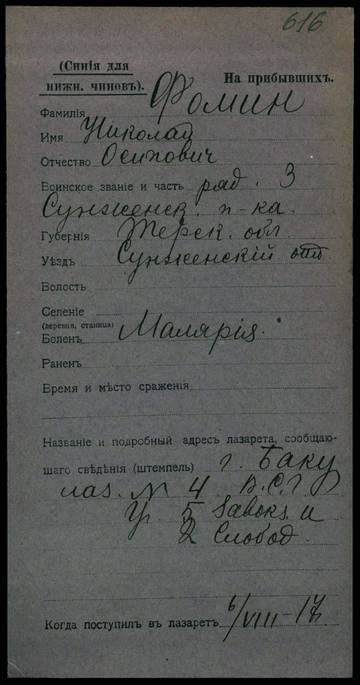 616
(Синія для
нижн. чиновъ).
На прибывшихъ.
Фамилія Фомин
Имя Николай
Отчество Осипович
Воинское званіе и часть ряд. 3
Сунженск. п-ка.
Губернія Терск. обл
Уѣздъ Сунженскій отд
Волость
Селеніе
(деревня, станица)
Боленъ Малярія.
Раненъ
Время и мѣсто сраженія
Названіе и подробный адресъ лазарета, сообщаю-
щаго свѣдѣнія (штемпель) г. Баку
лаз. № 4 В.С.Г
Уг 5 Завокз. и
2 Слобод.
Когда поступилъ въ лазаретъ 6/VIII-17